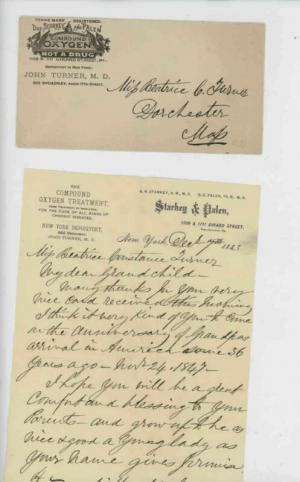 TRADE MARK REGISTERED.
DRS. STARKEY & PALEN
COMPOUND
OXYGEN
NOT A DRUG
1109 & 1111 GIRARD STREET,
DEPOSITORY IN NEW YORK:
JOHN TURNER, M. D.
862 BROADWAY,
Miss Beatrice C. Turner
Dorchester
Mass
THE
COMPOUND
OXYGEN TREATMENT,
FOR THE CURE OF ALL KINDS OF
CHRONIC DISEASES.
NEW YORK DEPOSITORY,
862 BROADWAY,
JOHN TURNER, M. D.
G. R. STARKEY, A.M., M.D. G. E. PALEN, PH.B., M.D.
Starkey & Palen,
1109 & 1111 GIRARD STREET,
New York Dec 1883
Miss Beatrice Constance Turner
My dear Grandchild—
Many thanks for your very
nice card received this morning
I think it very kind of you to
on the anniversary of Grandpas
arrival in America some 36
Years ago— Novr 24. 1847—
I hope you will be a great
Comfort and blessing to your
Parents— and grow up to be as
nice & good a young lady as
your name gives promise